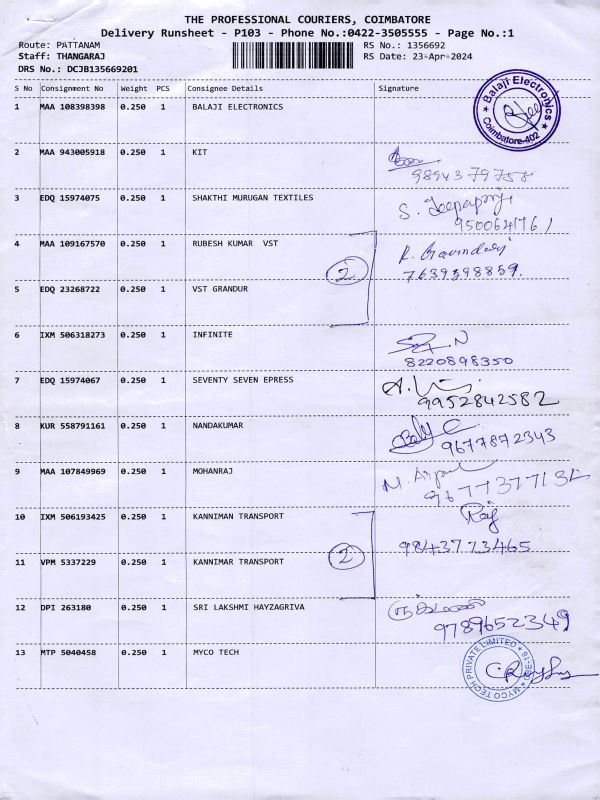 THE PROFESSIONAL COURIERS, COIMBATORE
Delivery Runsheet - P103 - Phone No.:0422-3505555 - Page No.:1
Route: PATTANAM RS No.: 1356692
Staff: THANGARAJ RS Date: 23-Apr-2024
DRS No.: DCJB135669201
S No Consignment No Weight PCS Consignee Details Signature
1 MAA 108398398 0.250 1 BALAJI ELECTRONICS
Balaji Electronics Coimbatore-402
2 MAA 943005918 0.250 1 KIT
9894379758
3 EDQ 15974075 0.250 1 SHAKTHI MURUGAN TEXTILES
S.
9500641761
4 MAA 109167570 0.250 1 RUBESH KUMAR VST
R.
2 7639598859.
5 EDQ 23268722 0.250 1 VST GRANDUR
6 IXM 506318273 0.250 1 INFINITE
8220898350
7 EDQ 15974067 0.250 1 SEVENTY SEVEN EPRESS
9952842582
8 KUR 558791161 0.250 1 NANDAKUMAR
9677872343
9 MAA 107849969 0.250 1 MOHANRAJ
M.
10 IXM 506193425 0.250 1 KANNIMAN TRANSPORT Raj
2 9843773465
11 VPM 5337229 0.250 1 KANNIMAR TRANSPORT
12 DPI 263180 0.250 1 SRI LAKSHMI HAYZAGRIVA
9789652349
13 MTP 5040458 0.250 1 MYCO TECH
MYCO TECH PRIVATE LIMITED